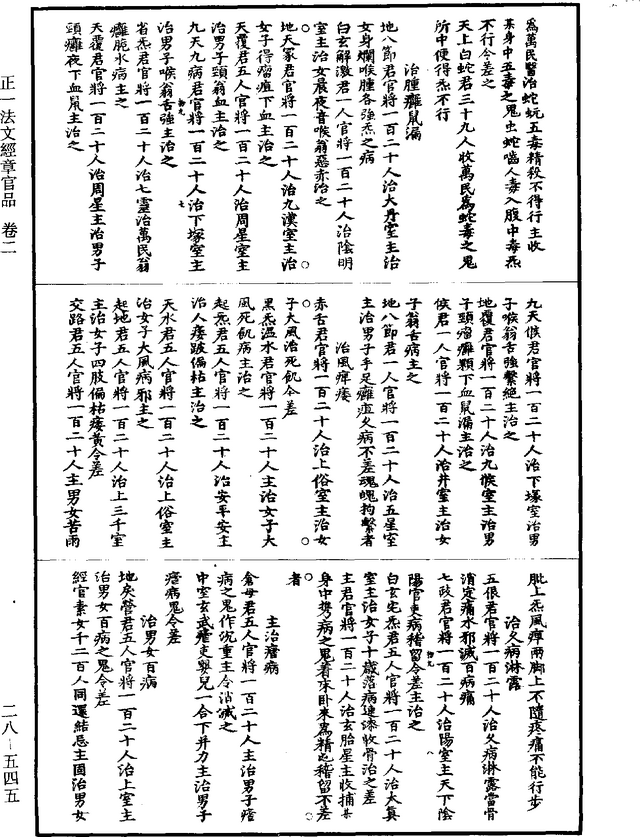 為萬民醫治蛇蚖五毒精殺不得行主收
某身中五毒之鬼虫蛇嚙人毒入腹中毒炁
不行令差之
天上白蛇君三十九人收萬民為蛇毒之鬼
所中便得炁不行
治腫癰鼠漏
地八節君官將一百二十人治大丹室主治
女身爛喉腫各強炁之病
白玄解激君一人官將一百二十人治陰明
室主治女晨夜音喉翁惡赤治之
地天冢君官將一百二十人治九漢室主治
女子得瘤疽下血主治之
天覆君五人官將一百二十人治周星室主
治男子頸翁血主治之
九天九病君官將一百二十人治下塚室主
治男子喉翁舌強主治之
省炁君官將一百二十人治七靈治萬民翁
癰脆水病主之
天覆君官將一百二十人治周星主治男子
頸癰夜下血鼠主治之
九天候君官將一百二十人治下塚室治男
子喉翁舌強繫絕主治之
地覆君官將一百二十人治九候室主治男
子頭瘤癰顆下血鼠漏主治之
候君一人官將一百二十人治井室主治女
子翁舌病主之
地八節君一人官將一百二十人治五星室
主治男子手足癰疽久病不差魂魄拘繫者
治風痺痿
赤舌君官將一百二十人治上俗室主治女
子大風治死飢令差
黑炁溫水君官將一百二十人主治女子大
風死飢病主治之
起炁君五人官將一百二十人治安平安主
治人痿跛偏枯主治之
天水君五人官將一百二十人治上俗室主
治女子大風病邪主之
起地君五人官將一百二十人治上三千室
主治女子四肢偏枯痿黃令差
交路君五人官將一百二十人主男女苦兩
肶上炁風痺兩脚上不隨疼痛不能行步
治久病淋露
五假君官將一百二十人治久病淋露當骨
消定痛水邪減百病痛
七政君官將一百二十人治陽室主天下陰
陽官吏病稽留令差主治之
白玄宅炁君五人官將一百二十人治太真
室主治女子十歲落病連滯收骨治之差
主君官將一百二十人治玄胎星主收捕某
身中擕病之鬼着床卧来為精已稽留不差
者
主治瘧病
倉母君五人官將一百二十人主治男子瘧
病之鬼作沉重主令消滅之
中室玄武瘧吏嬰兒一合下并力主治男子
瘧病鬼令差
治男女百病
地戾營君五人官將一百二十人治上室主
治男女百病之鬼令差
經官素女千二百人同還結忌主固治男女
正一法文經章官品　卷二
二八-五四五